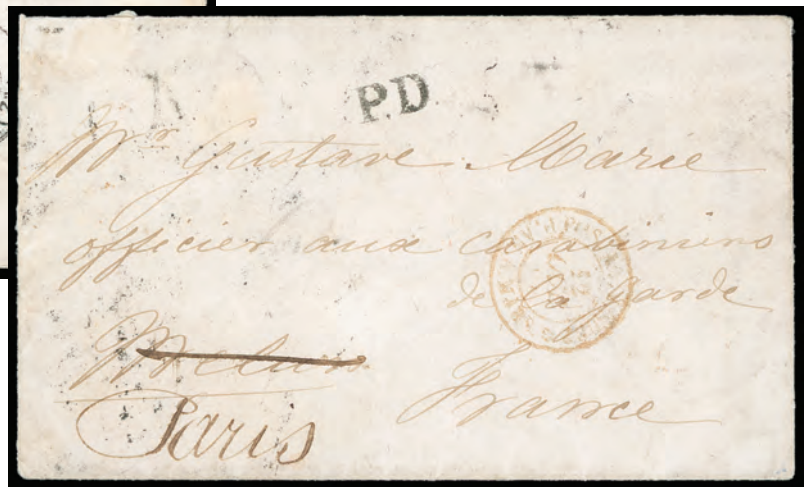 P.D.
Mr Gustave Marie
officier aux carabiniers
de la garde
Melun
Paris
France